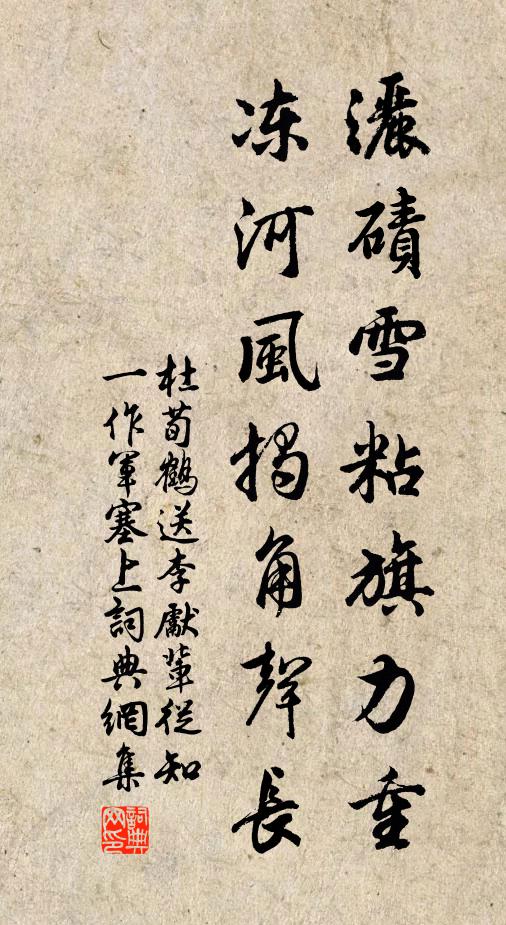 灑磧雪粘旗力重
凍河風揭角聲長
杜荀鶴送李獻輩從知
一作軍塞上詞典網集
詞典
网印